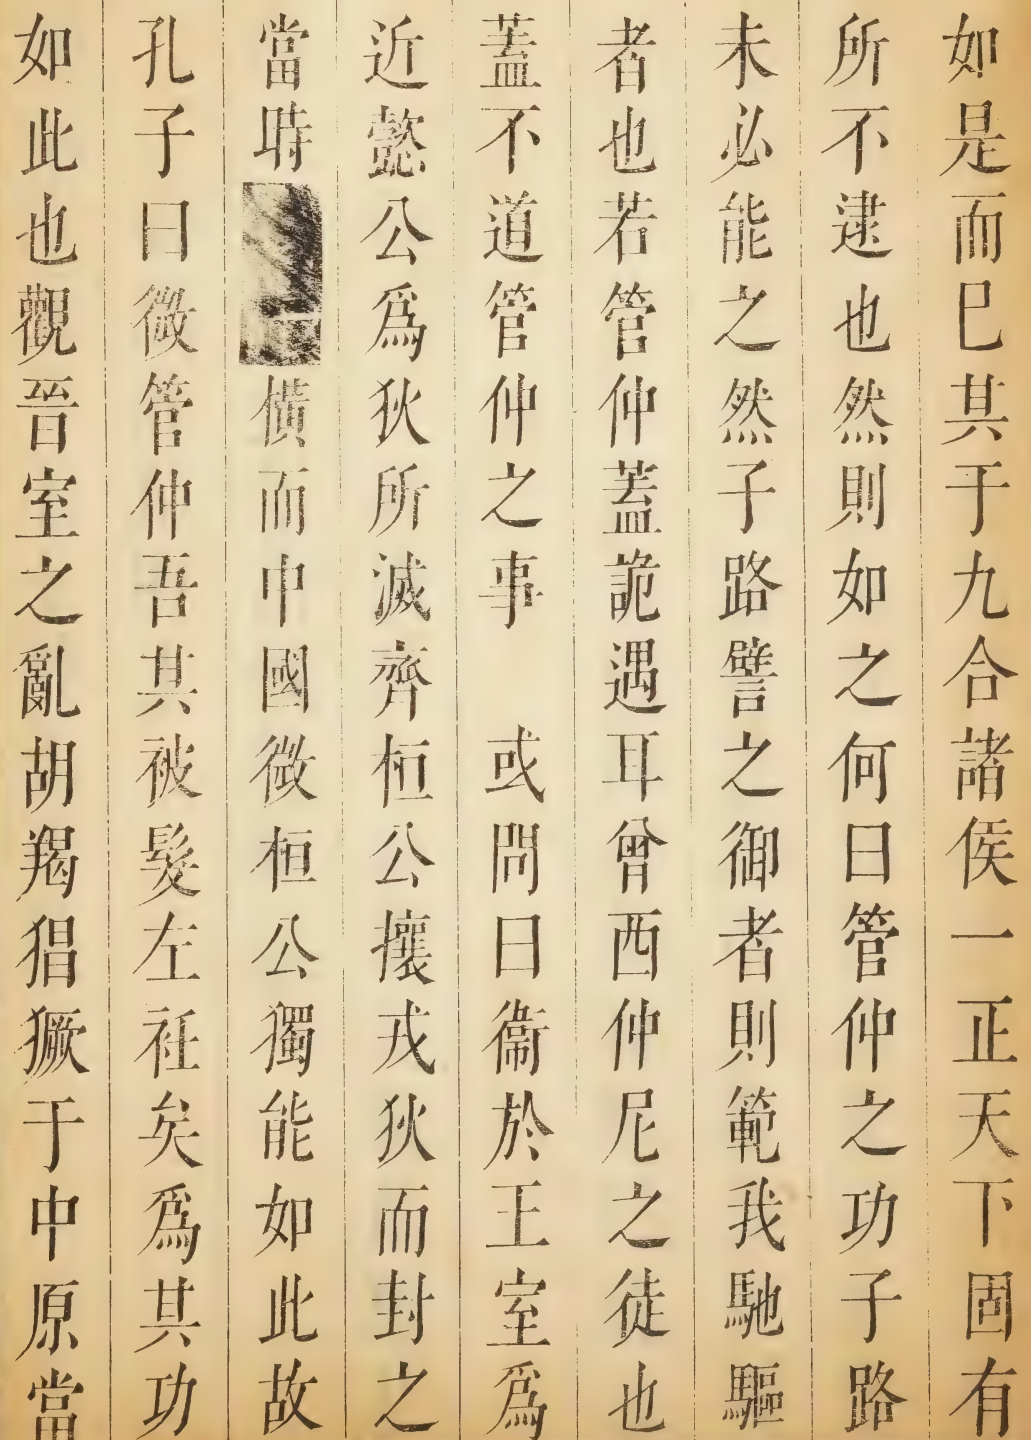 如是而巳其于九合諸侯一正天下固有
所不逮也然則如之何曰管仲之功子路
未必能之然子路譬之御者則範我馳驅
者也若管仲蓋詭遇耳曾西仲尼之徒也
蓋不道管仲之事 或問曰衞於王室爲
近懿公爲狄所滅齊桓公攘戎狄而封之
當時橫而中國微桓公獨能如此故
孔子曰微管仲吾其被髮左衽矣爲其功
如此也觀晉室之亂胡羯猖獗于中原當